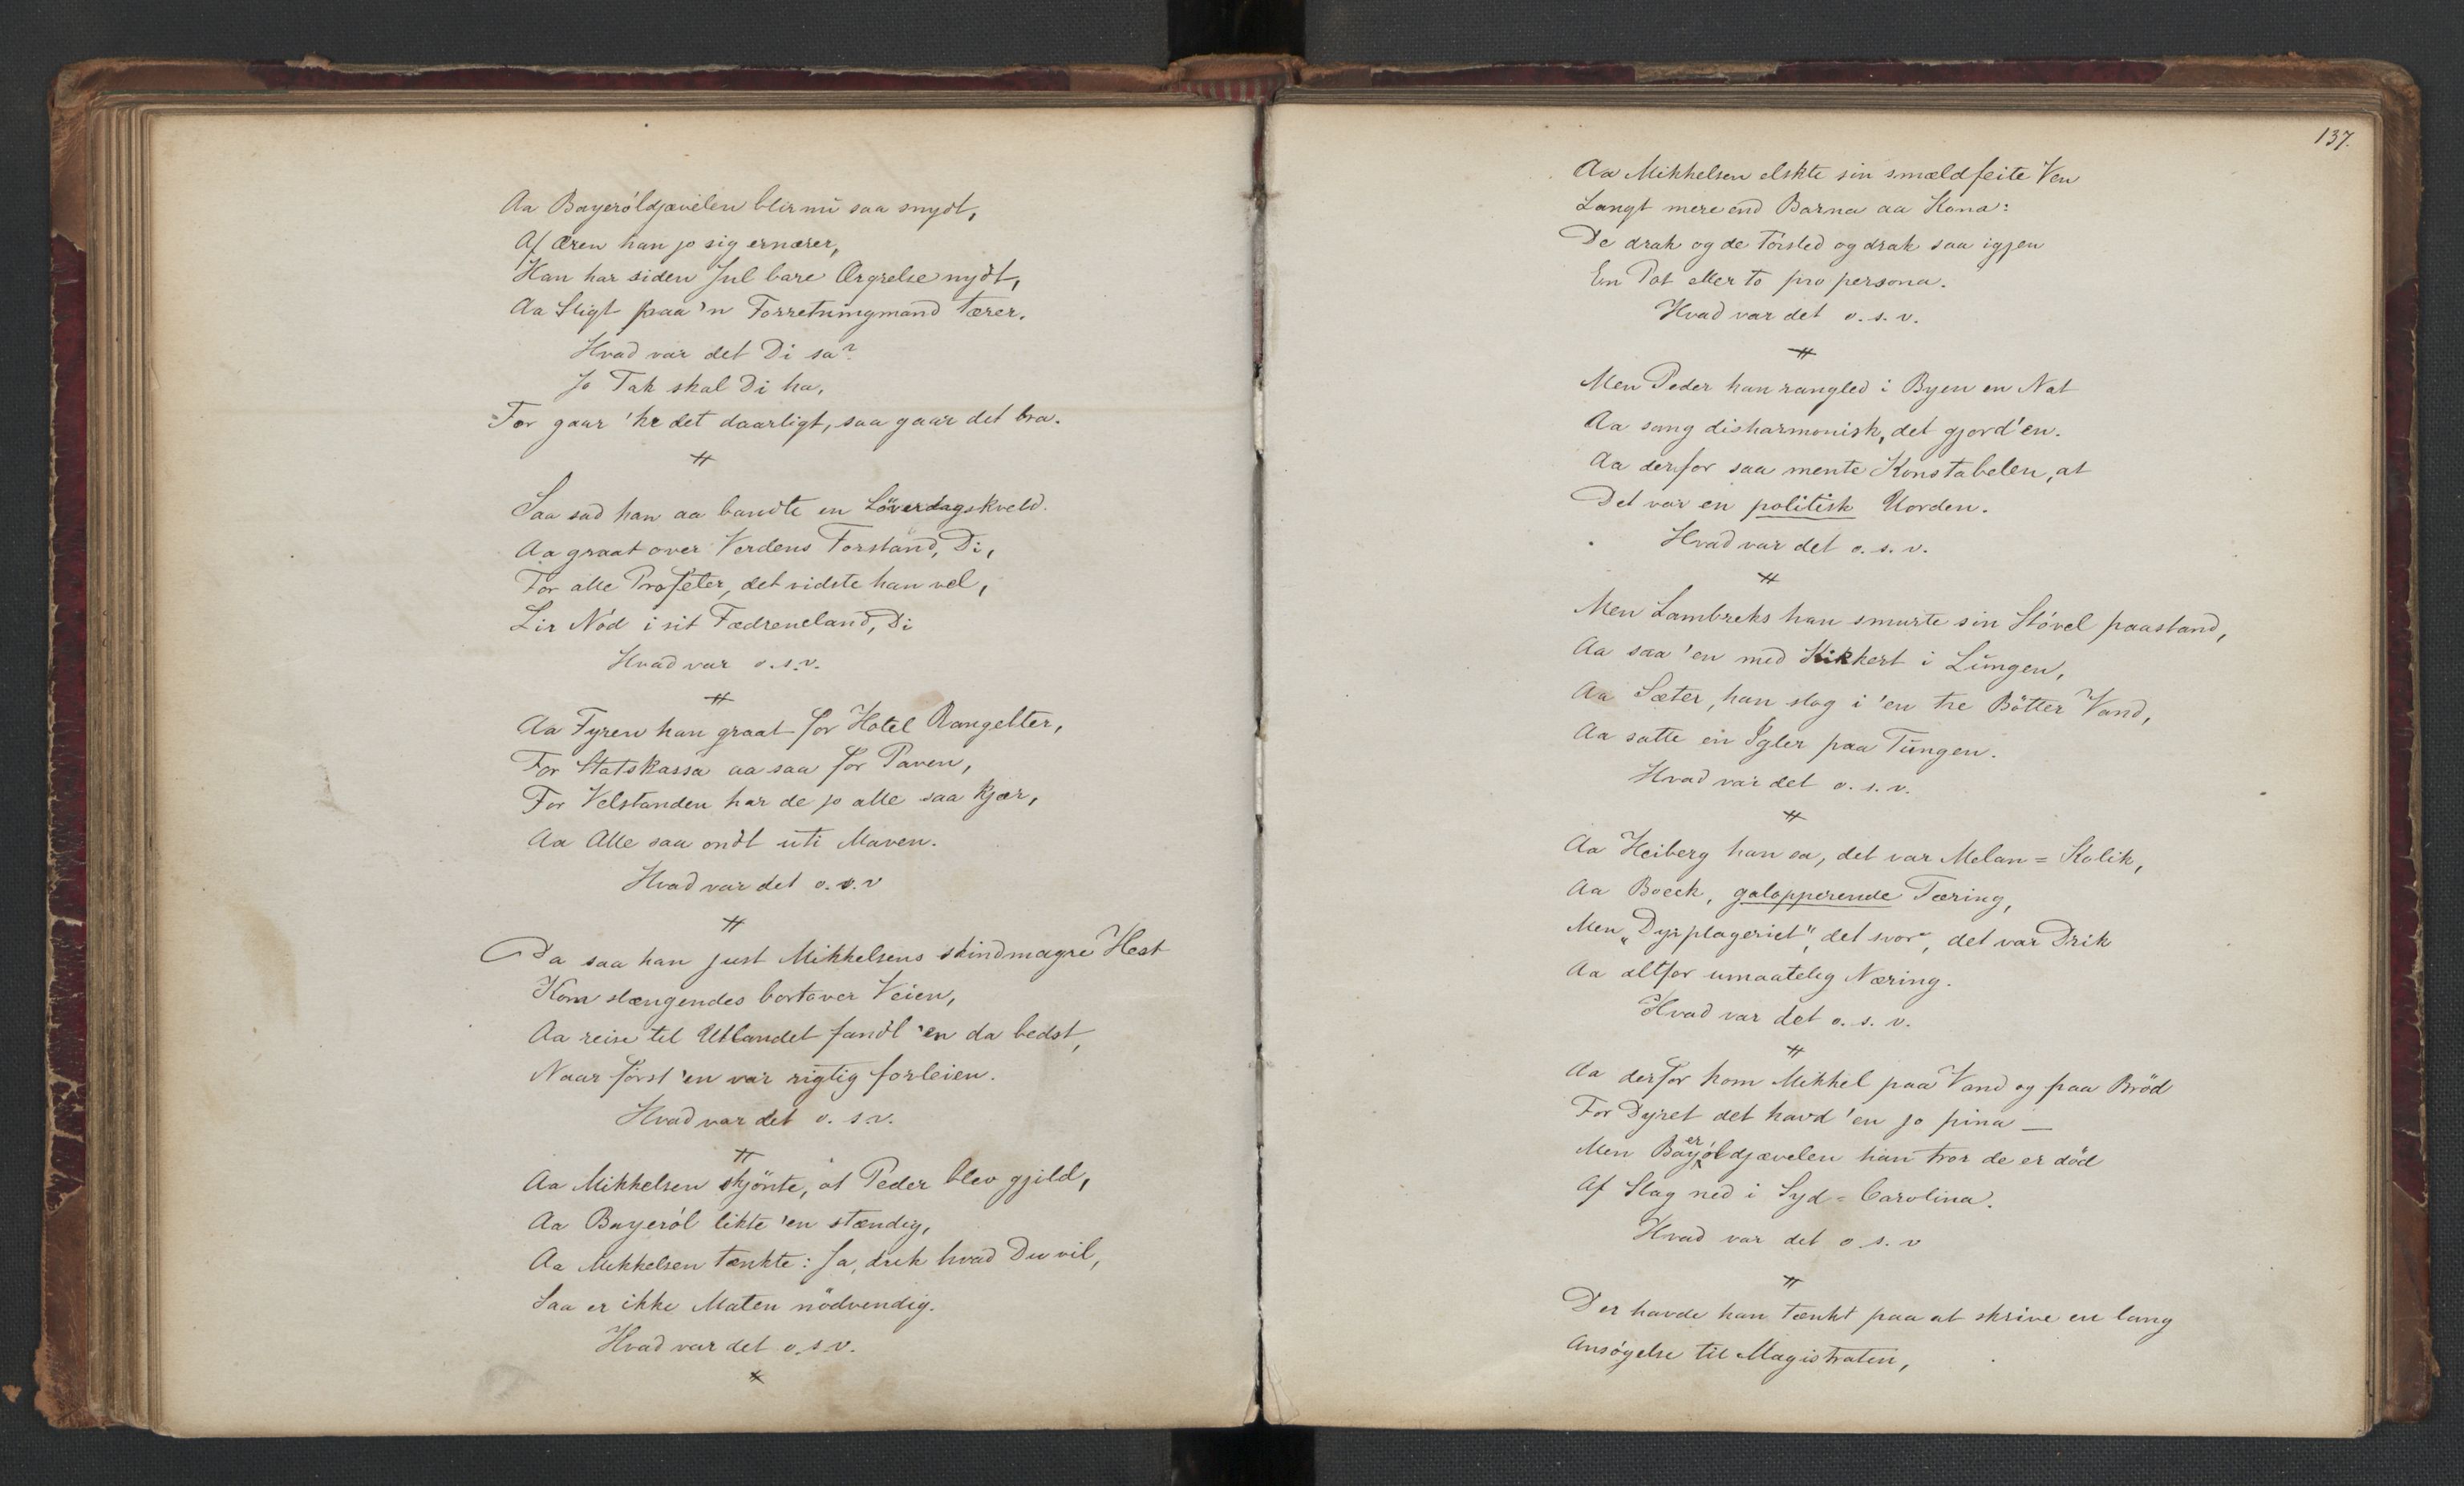 Aa Bayerøldjævelen blir nu saa snydt,
Af Æren han jo sig ernærer,
Han har siden Jul bare Ærgrelse nydt,
Aa Sligt paa 'n Forretningmand tærer.
Hvad var det Di sa?
Jo Tak skal Di ha,
For gaar 'ke det daarligt, saa gaar det bra.
Saa sad han aa bandte en Löverdagskveld.
Aa graat over Verdens Forstand, Di,
For alle Profeter, det vidste han vel,
Lir Nød i sit Fædreneland, Di
Hvad var o.s.v.
Aa Fyren han graat for Hotel Rangelter,
For Statskassa aa saa for Paven,
For Velstanden har de jo alle saa kjær,
Aa Alle saa ondt uti Maven.
Hvad var det o.s.v
Da saa han just Mikkelsens skindmagre Hest
Kom slængendes bortover Veien,
Aa reise til Utlandet fandt 'en da bedst,
Naar først 'en var rigtig forleien.
Hvad var det o. s.v.
Aa Mikkelsen skjönte, at Peder blev gjild,
Aa Bayerøl likte 'en stændig,
Aa Mikkelsen tænkte: Ja, drik hvad Du vil,
Saa er ikke Maten nödvendig.
Hvad var det o.s.v.
137.
Aa Mikkelsen elskte sin smældfeite Ven
Langt mere end Barna aa Kona:
De drak og de tørsted og drak saa igjen
En Pot eller to pro persona.
Hvad var det o.s.v.
Men Peder han rangled i Byen en Nat
Aa sang disharmonisk, det gjord'en.
Aa derfor saa mente Konstabelen, at
Det var en politisk Uorden.
Hvad var det o.s.v.
Men Lambreks han smurte sin Støvel paastand,
Aa saa 'en med Kikkert i Lungen,
Aa Sæter, han slog i 'en tre Bötter Vand,
Aa satte en Igler paa Tungen.
Hvad var det o.s.v.
Aa Heiberg han sa, det var Melan=Kolik,
Aa Boeck, galopperende Tæring,
Men „Dyrplageriet", det svor, det var Drik
Aa altfor umaatelig Næring.
Hvad var det o.s.v.
Aa derfor kom Mikkel paa Vand og paa Bröd
For Dyret det havd 'en jo pina —
Men Bayerøldjævelen han tror de er död
Af Slag ned i Syd=Carolina.
Hvad var det o.s.v
Der havde han tænkt paa at skrive en lang
Ansøgelse til Magistraten,